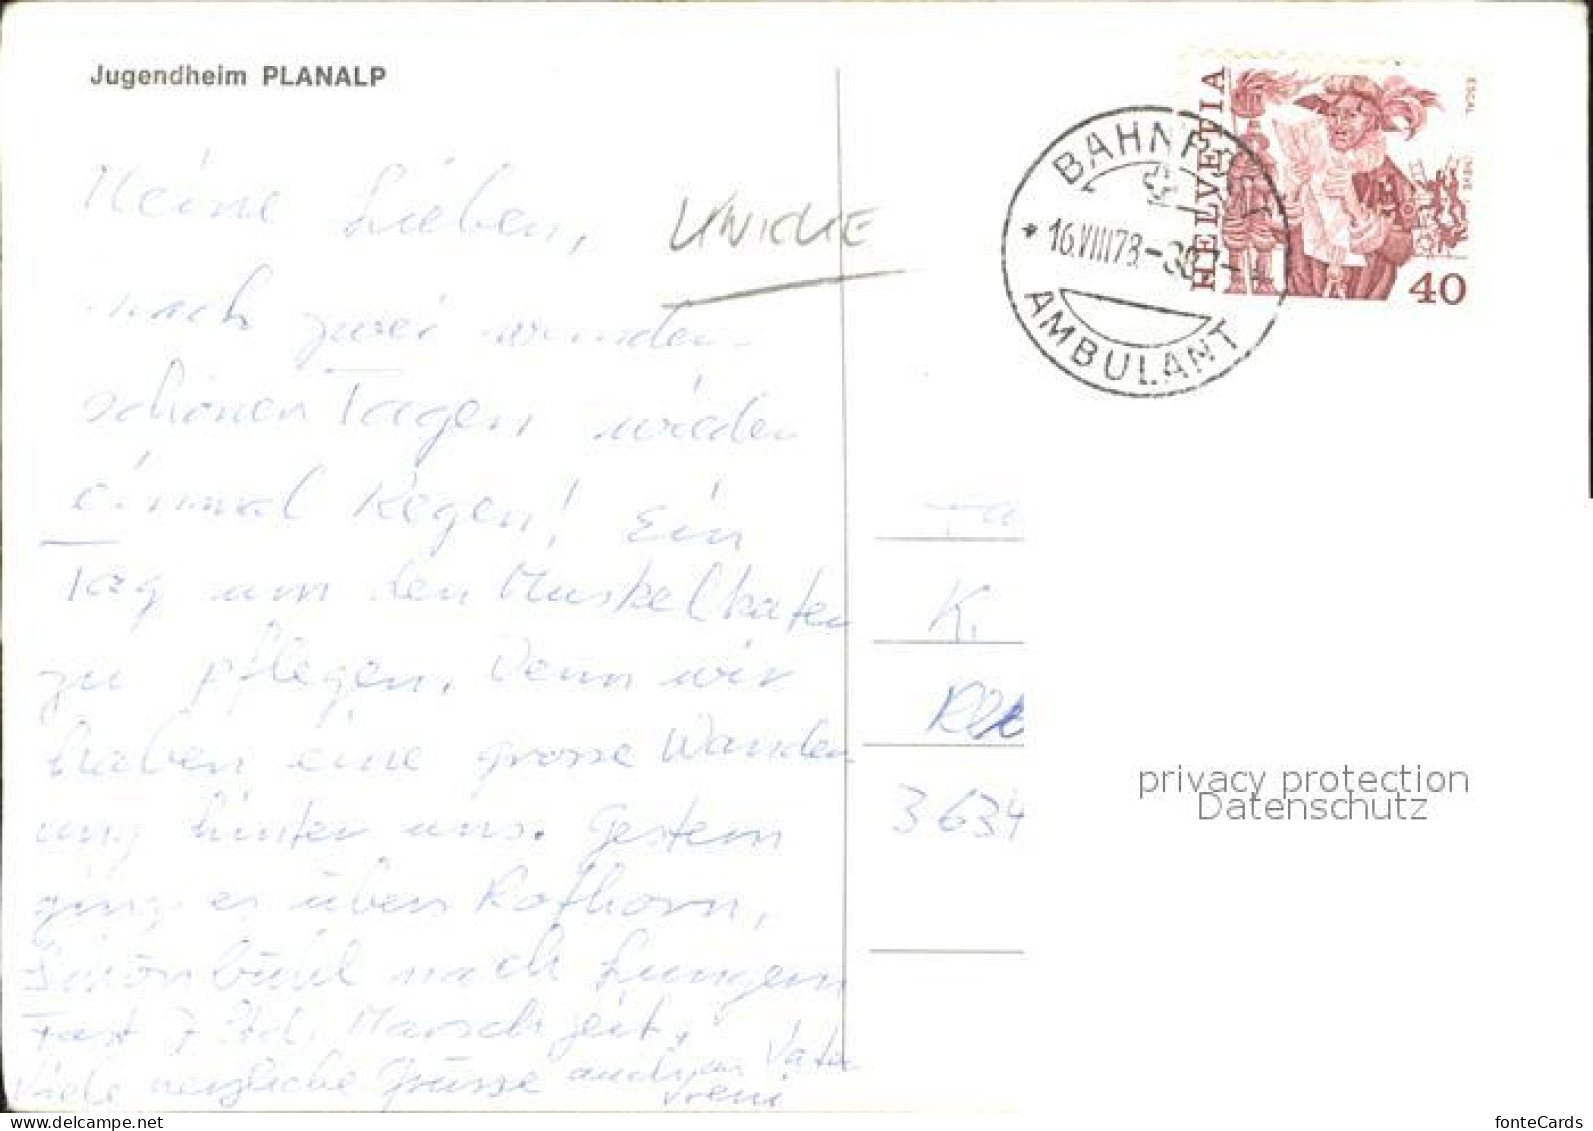 Jugendheim PLANALP
Meine Lieben,
UNIQUE
nach zwei wunder-
schönen Tagen wieder
einmal Regen! Ein
Tag um den Muskelkater
zu pflegen. Denn wir
haben eine grosse Wander
ung hinter uns. Gestern
ging es übers Rothorn,
Schönbühl nach Lungern
Fast 7 Std. Marschzeit,
Viele herzliche Grüsse auch von Vater
Vreni
BAHNPOST
16.VIII78.-
AMBULANT
HELVETIA
40
K.
3634
privacy protection
Datenschutz
www.delcampe.net
fonteCards